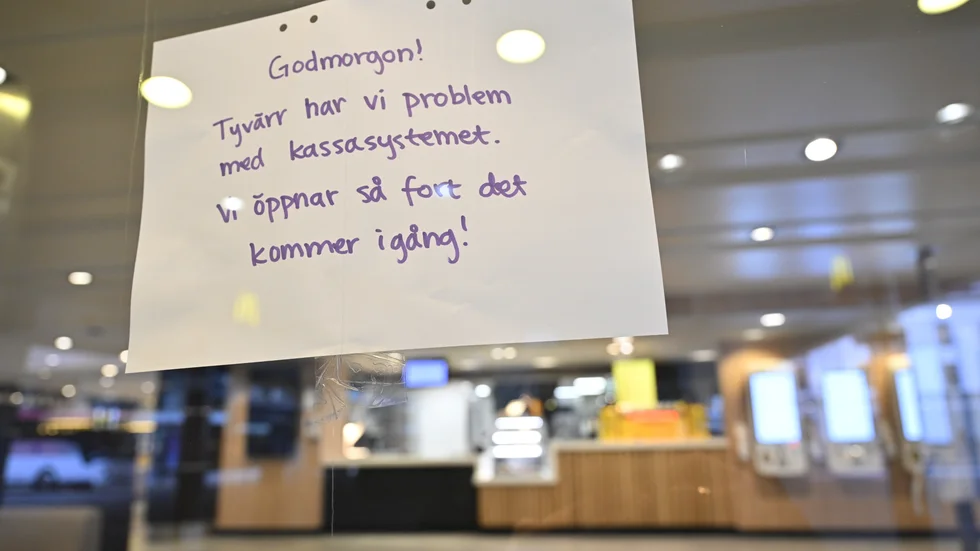 Godmorgon!
Tyvärr har vi problem
med kassasystemet.
Vi öppnar så fort det
kommer igång!